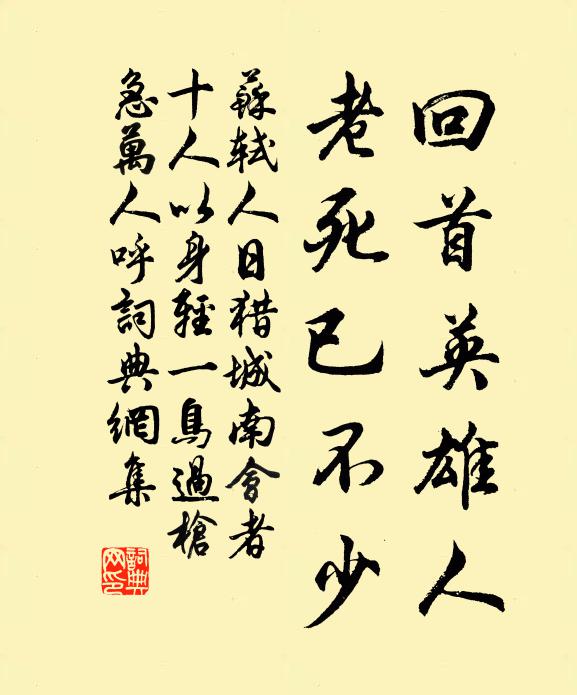 回首英雄人
老死已不少
蘇軾人日猎城南會者
十人以身輕一鳥過槍
急萬人呼詞典網集
詞典
网印